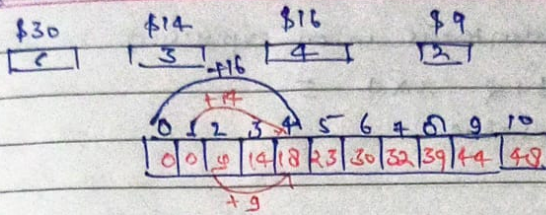 $30 $14 $16 $9
6 3 4 2
+16
+14
0 1 2 3 4 5 6 7 8 9 10
0 0 9 14 18 23 30 32 39 44 48
+9